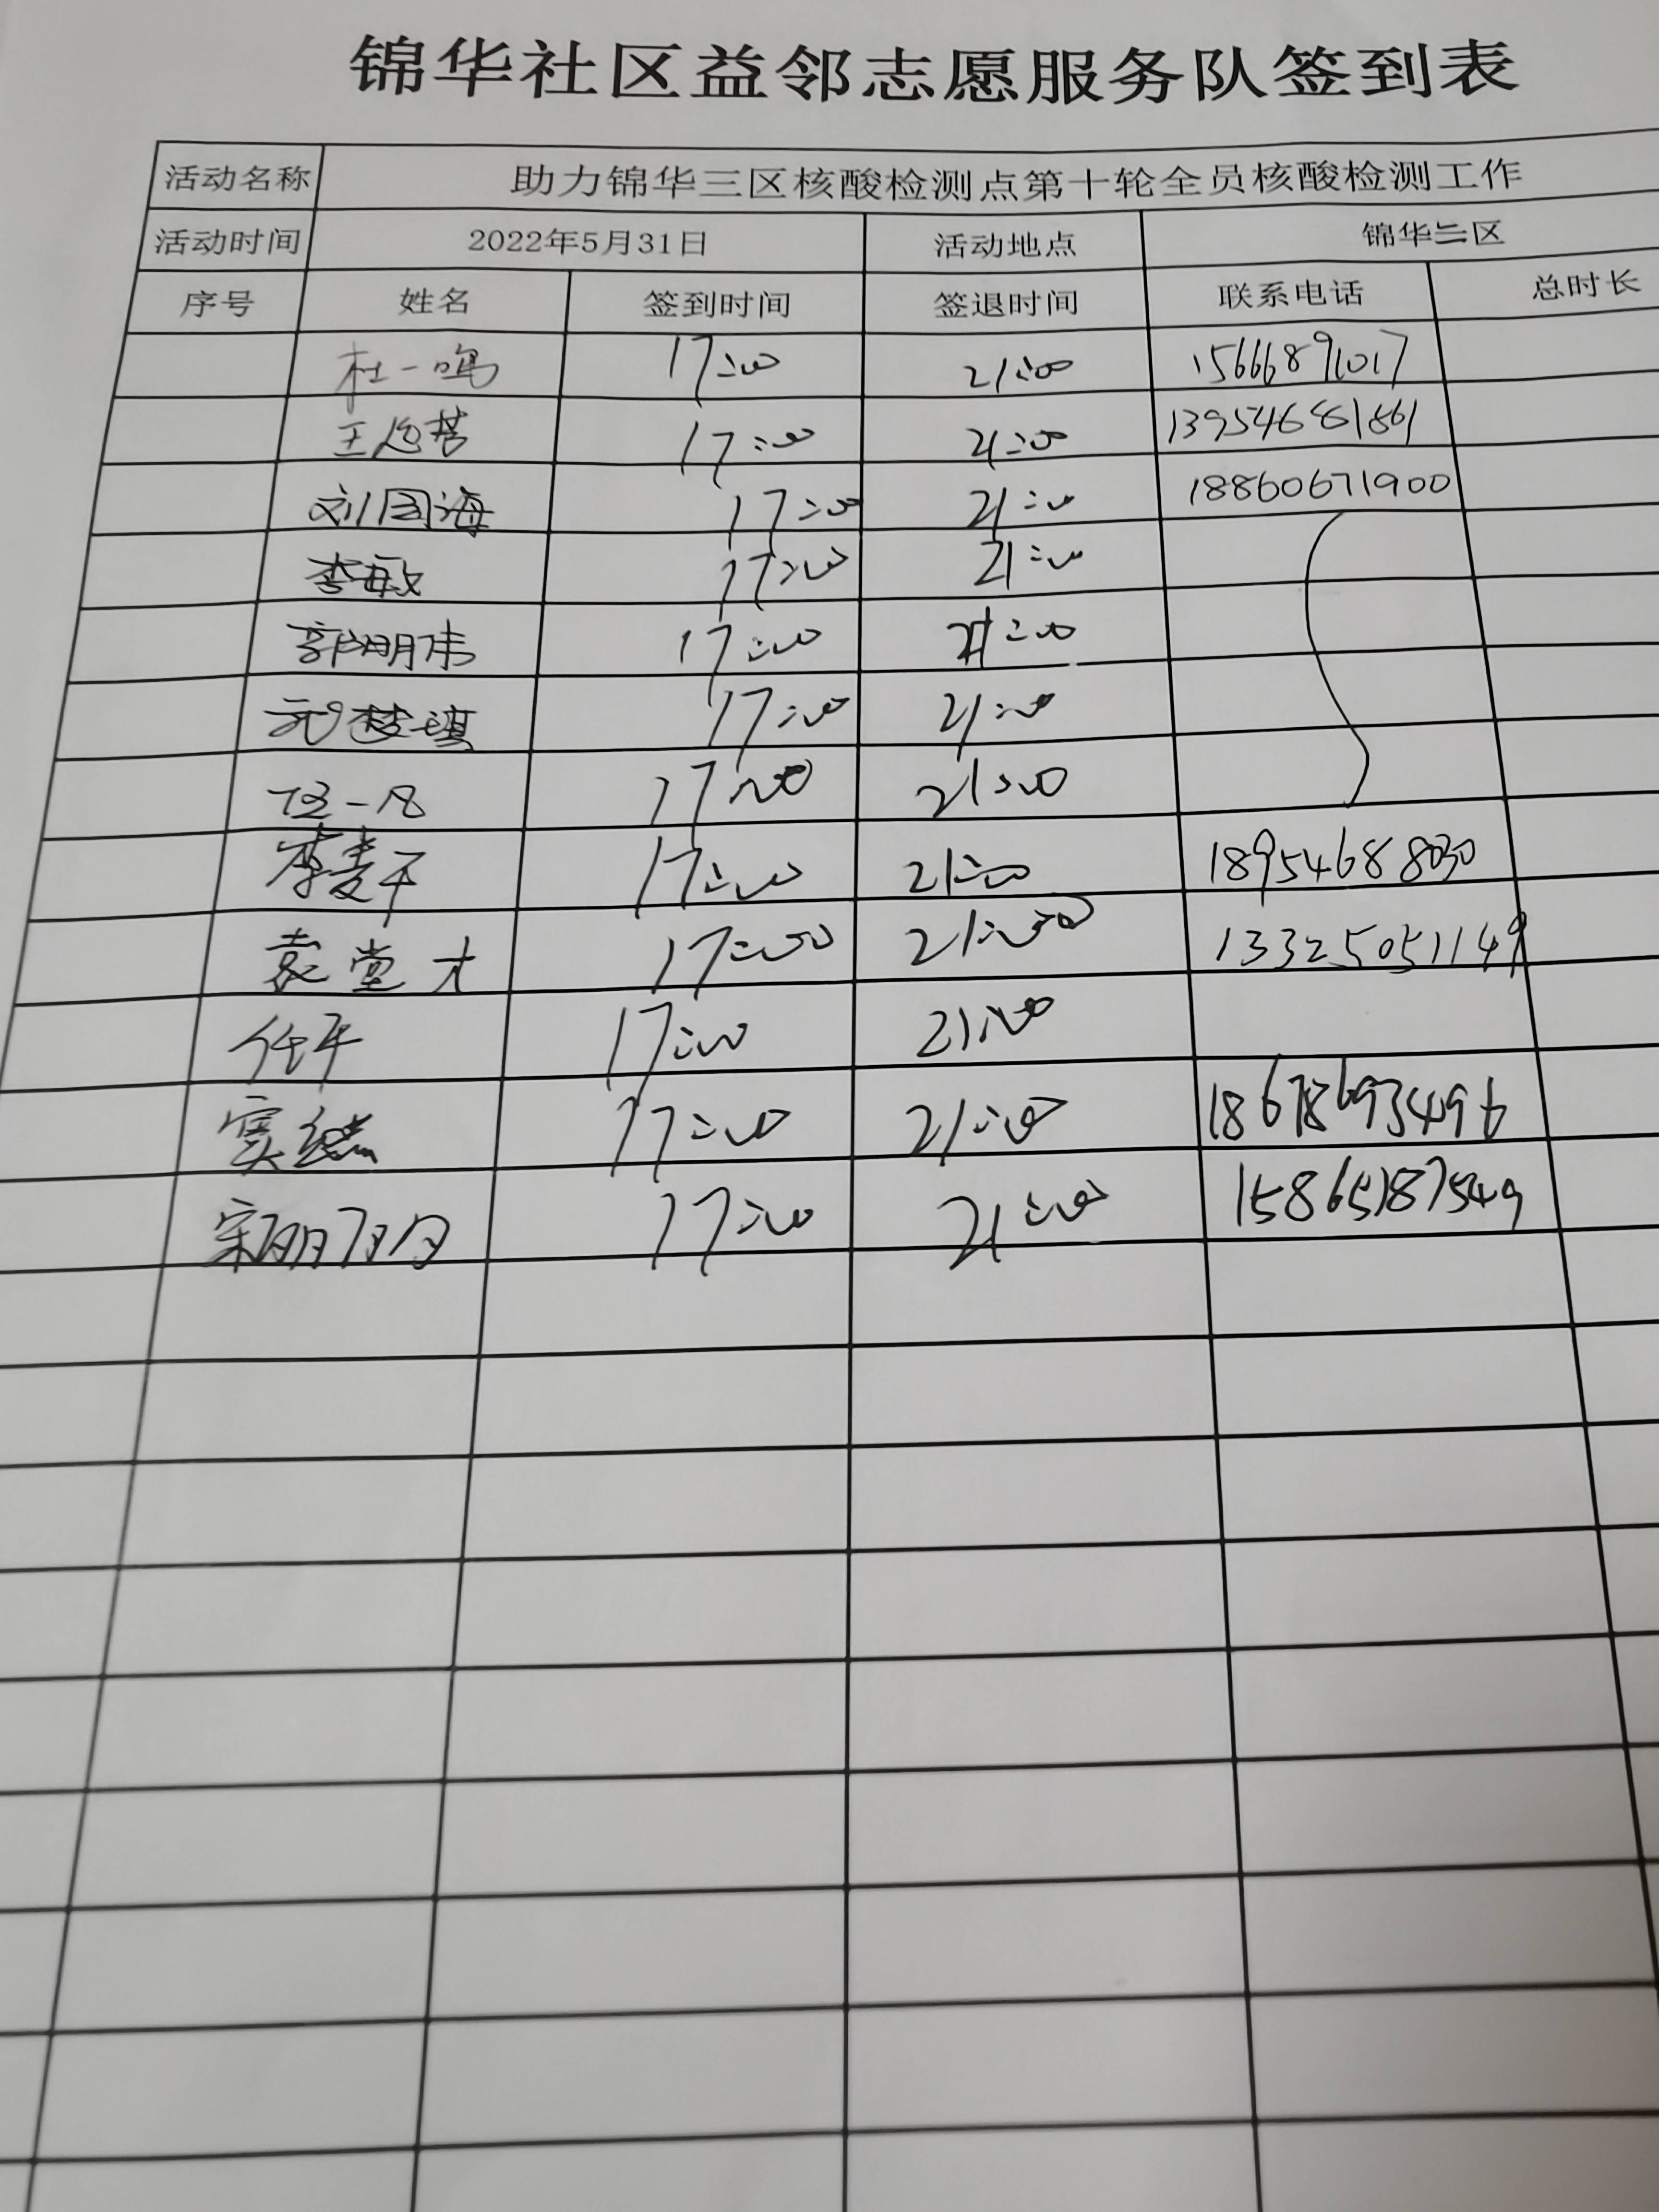 锦华社区益邻志愿服务队签到表
活动名称 助力锦华三区核酸检测点第十轮全员核酸检测工作
活动时间 2022年5月31日 活动地点 锦华三区
序号 姓名 签到时间 签退时间 联系电话 总时长
杜一鸣 17:00 21:00 15666891017
17:00 21:00 13954681861
刘国海 17:00 21:00 18860671900
李敏 17:00 21:00
郭明伟 17:00 21:00
17:00 21:00
17:00 21:00
李麦干 17:00 21:00 18954688030
袁堂才 17:00 21:00 13325051149
任平 17:00 21:00
17:00 21:00 18678693496
宋明月 17:00 21:00 15865187549